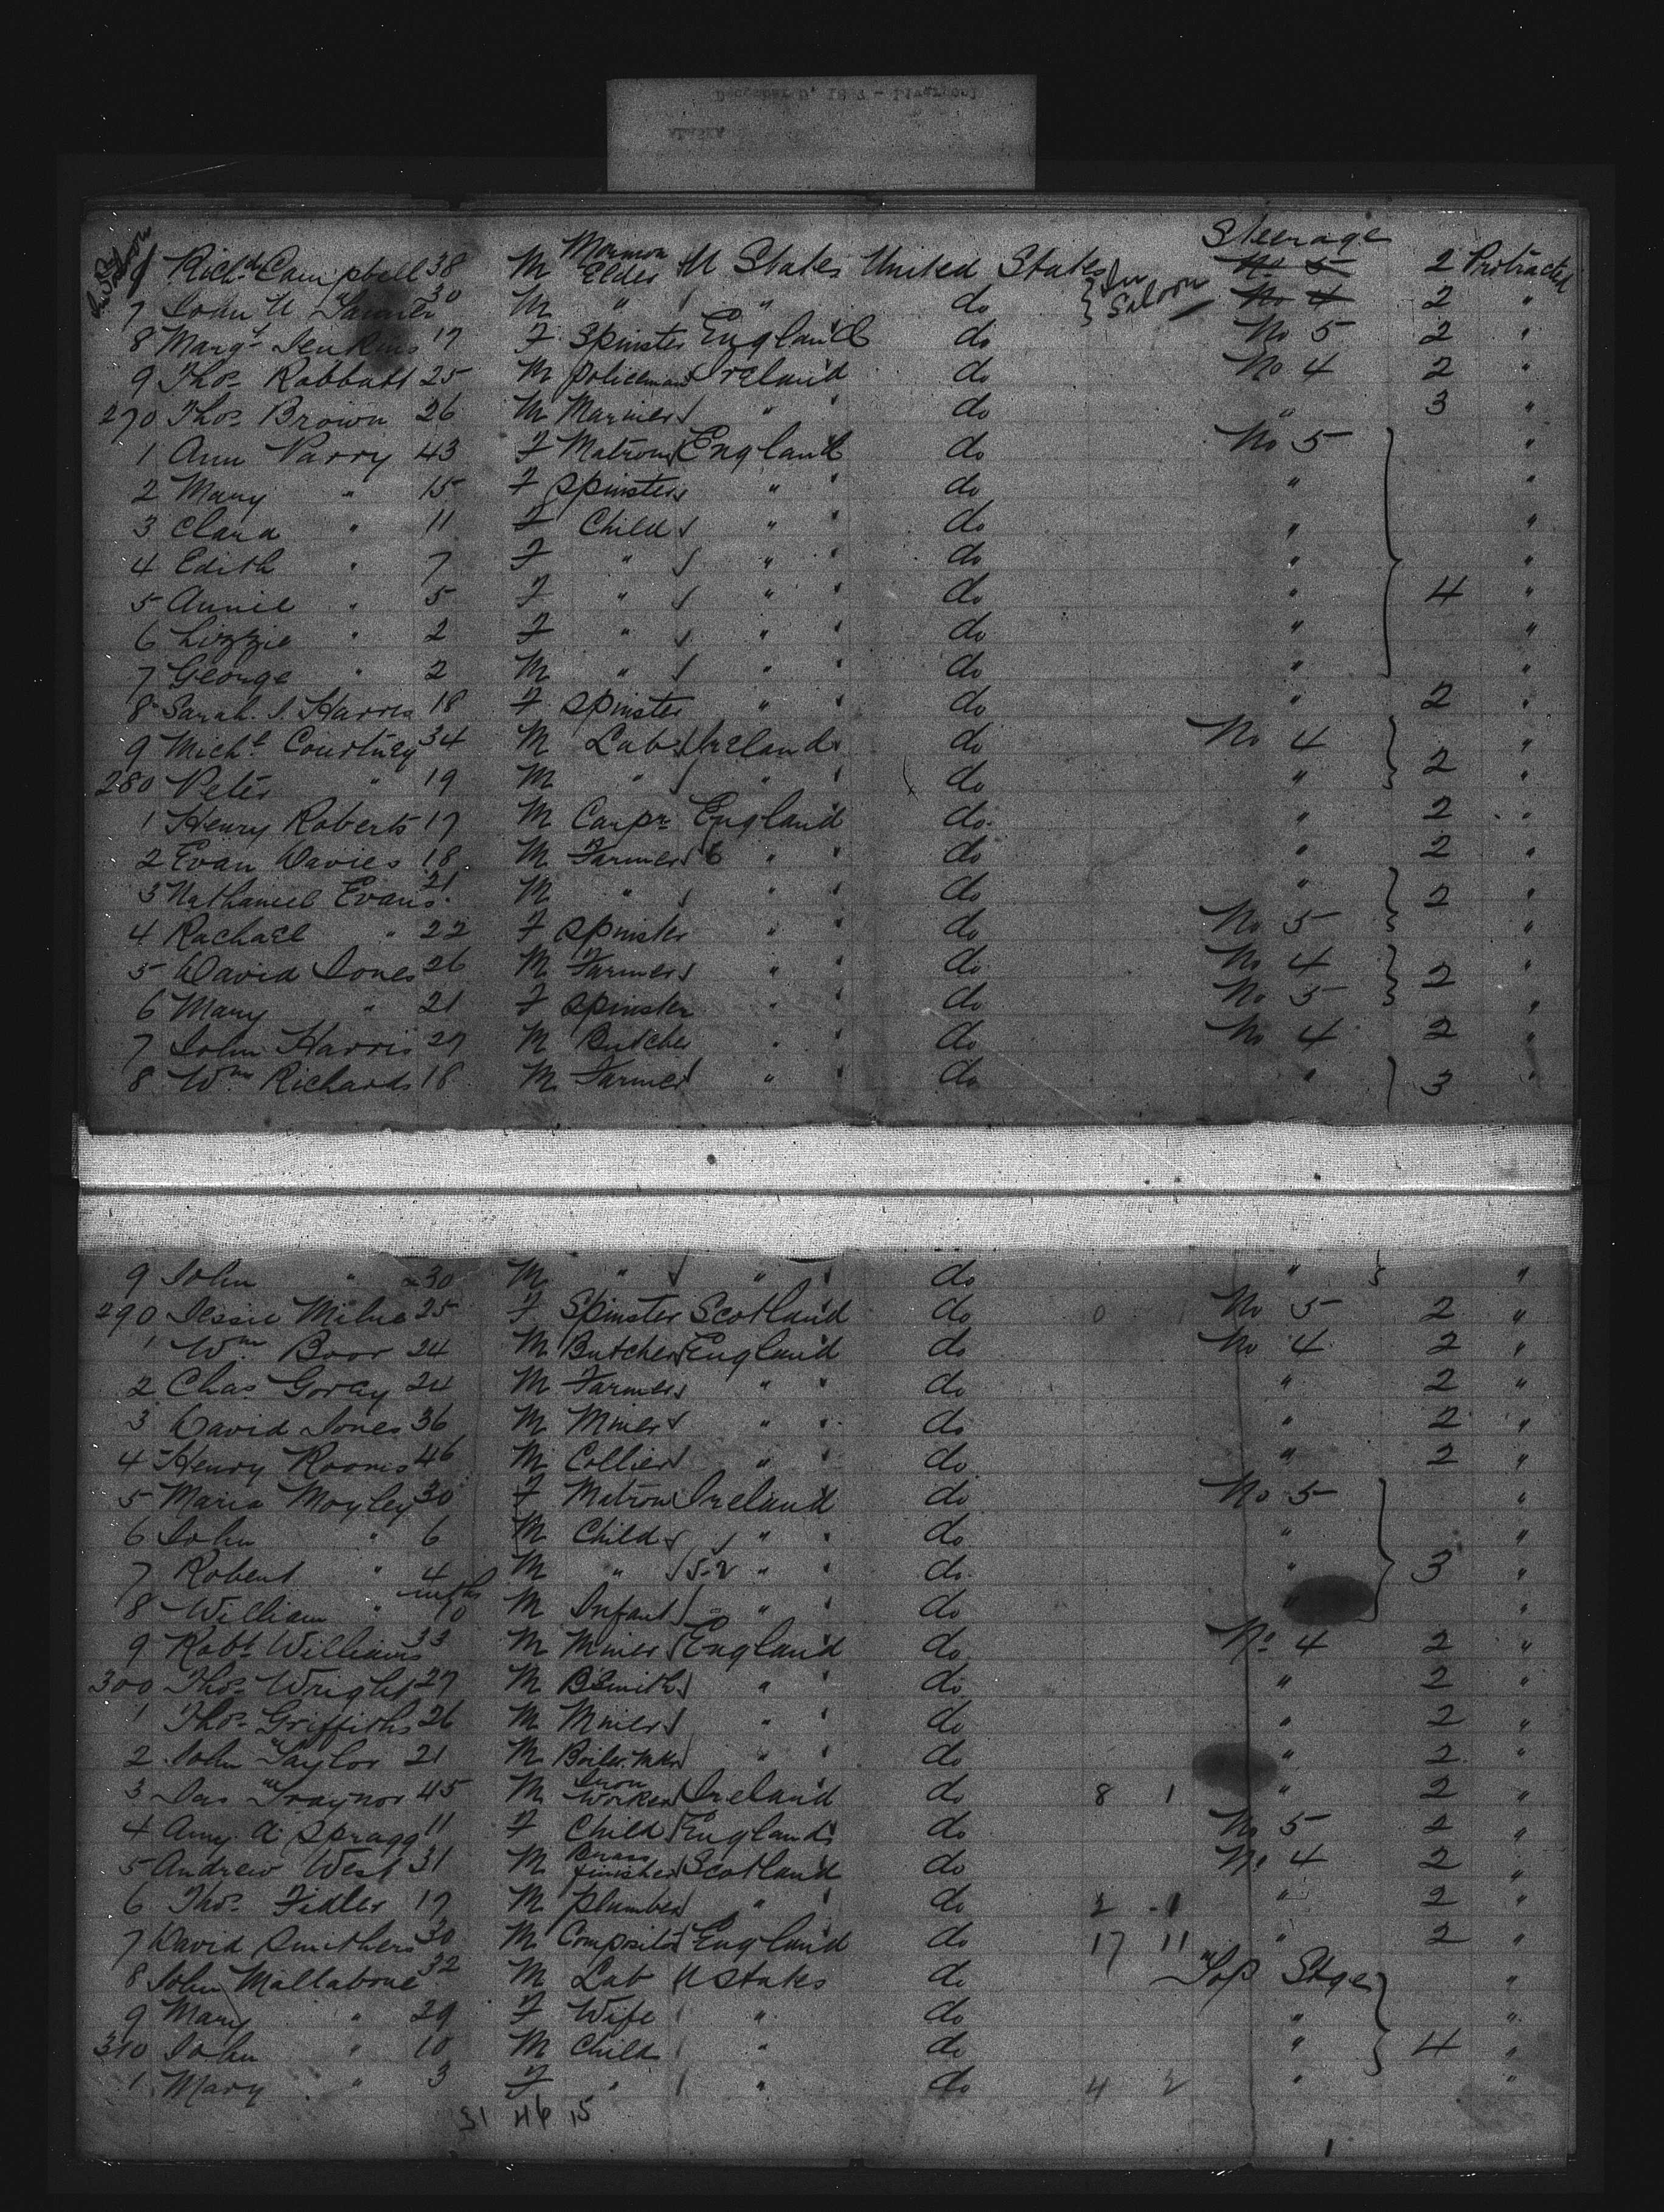 Steerage
6 Richd Campbell 38 M Mormon Elder U States United States } In Saloon No 5 2 Protracted
7 John U Tanner 30 M " " do No 4 2 "
8 Margt Jenkins 17 F Spinster England do No 5 2 "
9 Thos Rabbatt 25 M Policeman Ireland do No 4 2 "
270 Thos Brown 26 M Mariner " " do " 3 "
1 Ann Parry 43 F Matron England do No 5 "
2 Mary " 15 F Spinster " " do " "
3 Clara " 11 F Child " " do " "
4 Edith " 7 F " " " do " "
5 Annie " 5 F " " " do " 4 "
6 Lizzie " 2 F " " " do " "
7 George " 2 M " " " do " "
8 Sarah J. Harris 18 F Spinster " " do " 2 "
9 Michl Courtney 34 M Lab Ireland do No 4 "
280 Peter " 19 M " " " do " 2 "
1 Henry Roberts 17 M Carpr England do " 2 "
2 Evan Davies 18 M Farmer 6 " " do " 2 "
3 Nathaniel Evans 21 M " " " do " 2 "
4 Rachael " 22 F Spinster " " do No 5 "
5 David Jones 26 M Farmer " " do No 4 2 "
6 Mary " 21 F Spinster " " do No 5 "
7 John Harris 27 M Butcher " " do No 4 2 "
8 Wm Richards 18 M Farmer " " do " 3 "
9 John " 30 M " " " do " "
290 Jessie Milne 25 F Spinster Scotland do No 5 2 "
1 Wm Boor 24 M Butcher England do No 4 2 "
2 Chas Goray 24 M Farmer " " do " 2 "
3 David Jones 36 M Miner " " do " 2 "
4 Henry Rooms 46 M Collier " " do " 2 "
5 Maria Moyley 30 F Matron Ireland do No 5 "
6 John " 6 M Child " " do " "
7 Robert " 4 M " 5-2 " " do " 3 "
8 William " mths 10 M Infant " " do " "
9 Robt Williams 33 M Miner England do No 4 2 "
300 Thos Wright 27 M BSmith " " do " 2 "
1 Thos Griffiths 26 M Miner " " do " 2 "
2 John Taylor 21 M Boiler Mkr " " do " 2 "
3 Jas Traynor 45 M Iron Worker Ireland do 8 1 " 2 "
4 Amy A Spragg 11 F Child England do No 5 2 "
5 Andrew West 31 M Brass finisher Scotland do No 4 2 "
6 Thos Fidler 17 M Plumber " " do 2 1 " 2 "
7 David Smithers 30 M Compositor England do 17 11 " 2 "
8 John Mallabone 32 M Lab U States do Top Stge "
9 Mary " 29 F Wife " do " "
310 John " 10 M Child " do " 4 "
1 Mary " 3 F " " do 4 2 " "
31 46 15